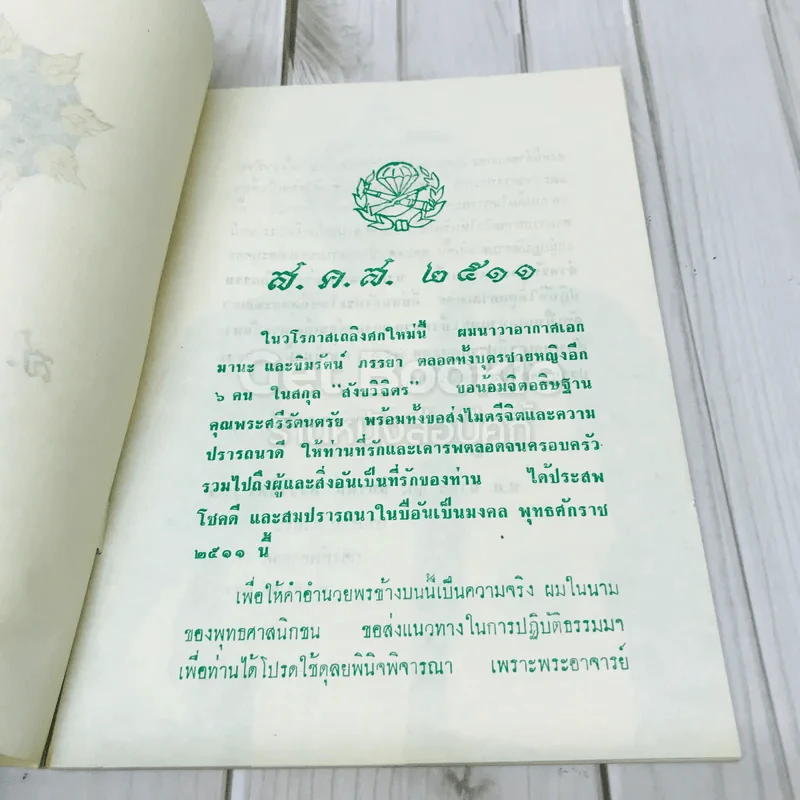 ส.ค.ส. ๒๕๑๑
ในวโรกาสเถลิงศกใหม่นี้ ผมนาวาอากาศเอก
มานะ และขิมรัตน์ ภรรยา ตลอดทั้งบุตรชายหญิงอีก
๖ คน ในสกุล "สังขวิจิตร" ขอน้อมจิตอธิษฐาน
คุณพระศรีรัตนตรัย พร้อมทั้งขอส่งไมตรีจิตและความ
ปรารถนาดี ให้ท่านที่รักและเคารพตลอดจนครอบครัว
รวมไปถึงผู้และสิ่งอันเป็นที่รักของท่าน ได้ประสพ
โชคดี และสมปรารถนาในปีอันเป็นมงคล พุทธศักราช
๒๕๑๑ นี้
เพื่อให้คำอำนวยพรข้างบนนี้เป็นความจริง ผมในนาม
ของพุทธศาสนิกชน ขอส่งแนวทางในการปฏิบัติธรรมมา
เพื่อท่านได้โปรดใช้ดุลยพินิจพิจารณา เพราะพระอาจารย์